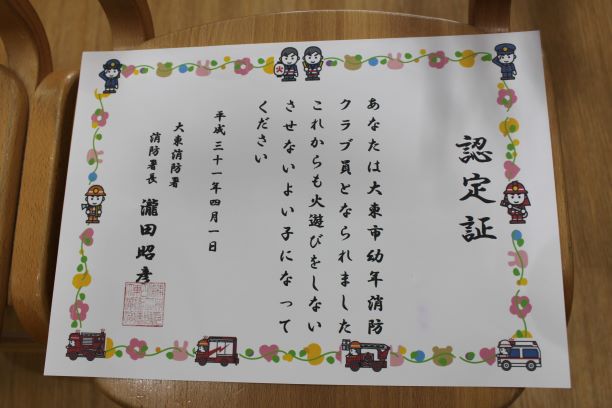 認定証
あなたは大東市幼年消防
クラブ員となられました
これからも火遊びをしない
させないよい子になって
ください
平成三十一年四月一日
大東消防署
消防署長 瀧田昭彦